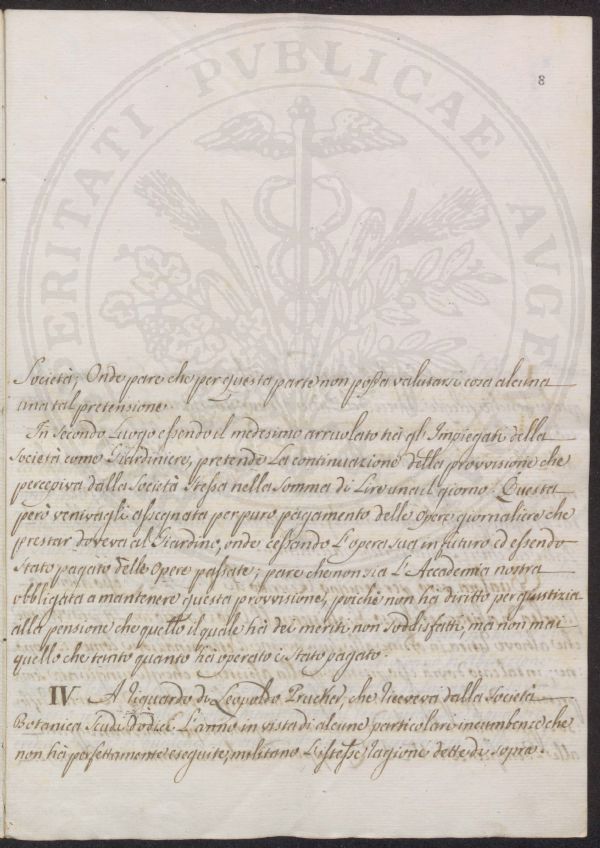 8
PROSPERITATI PVBLICAE AVGENDAE
Società; Onde pare che per questa parte non possa valutarsi cosa alcuna
una tal pretensione.
In secondo Luogo essendo il medesimo arruolato trà gl' Impiegati della
Società come Giardiniere, pretende La continuazione della provvisione che
percepiva dalla Società Stessa nella Somma di Lire una il giorno. Questa
però venivagli assegnata per puro pagamento delle Opere giornaliere che
prestar doveva al Giardino, onde cessando L' opera sua in futuro, ed essendo
Stato pagato delle Opere passate; pare che non sia L' Accademia nostra
obbligata a mantenere questa provvisione, poichè non hà diritto per giustizia
alla pensione che quello il quale hà dei meriti non Soddisfatti, mà non mai
quello che tanto quanto hà operato è stato pagato.
IV. A riguardo di Leopoldo Prucker, che riceveva dalla Società
Botanica Scudi Dodici L' anno in vista di alcune particolari incumbenze che
non hà perfettamente eseguite, militano Le Stesse ragione dette di sopra.